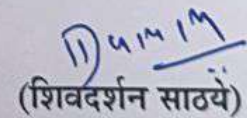 (शिवदर्शन साठये)